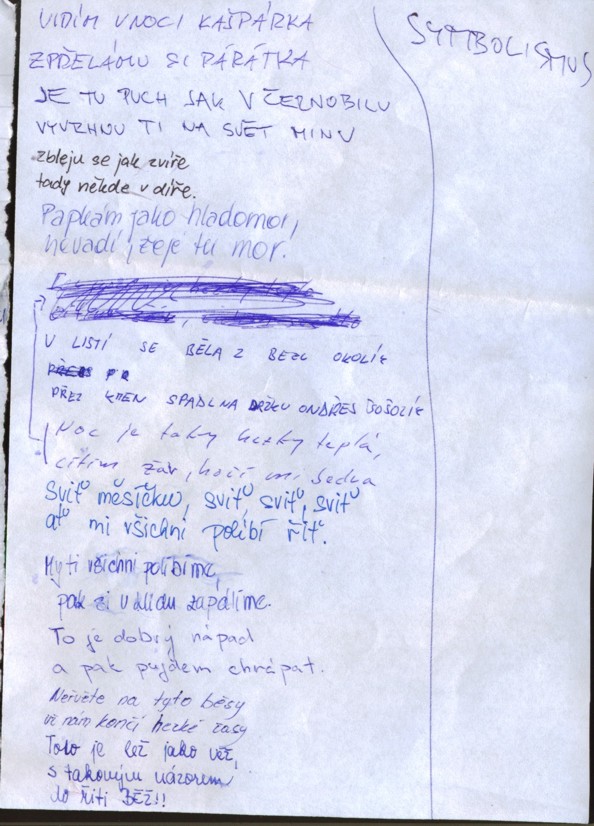 SYMBOLISMUS
VIDÍM V NOCI KAŠPÁRKA
ZPŘELÁMU SI PÁRÁTKA
JE TU PUCH JAK V ČERNOBILU
VYVRHNU TI NA SVĚT MINU
zbleju se jak zvíře
tady někde v díře.
Papkám jako hladomor,
nevadí, že je tu mor.
V LISTÍ SE BĚLÁ Z BEZU OKOLÍK
PŘEZ KMEN SPADL NA DRŽKU ONDŘEJ
Noc je taky hezky teplá,
cítím žár, hoří mi
Sviť měsíčku, sviť, sviť, sviť
ať mi všichni políbí řiť.
My ti všichni políbíme,
pak si v klidu zapálíme.
To je dobrý nápad
a pak pujdem chrápat.
Neřvěte na tyto běsy
už nám končí hezké časy
Toto je lež jako věž,
s takovým názorem
do řiti BĚŽ!!